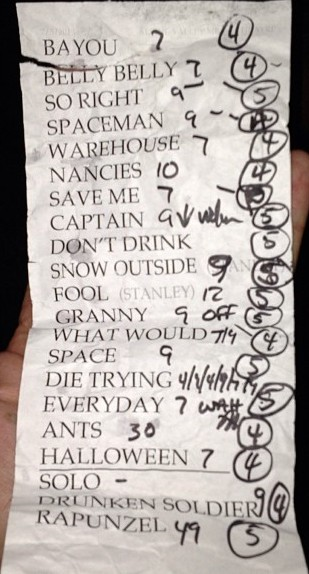 BAYOU 7 4
BELLY BELLY 7 4 -
SO RIGHT 9 - - 5
SPACEMAN 9 - - 4
WAREHOUSE 7 4
NANCIES 10 4
SAVE ME 7 - 5
CAPTAIN 9 ↓ 5
DON'T DRINK 5
SNOW OUTSIDE 9 5
FOOL (STANLEY) 12 5
GRANNY 9 OFF 5
WHAT WOULD 7/9 4
SPACE 9 5
DIE TRYING
EVERYDAY 7 WAH 5
ANTS 30 4
HALLOWEEN 7 4
SOLO -
DRUNKEN SOLDIER 9 4
RAPUNZEL 49 5